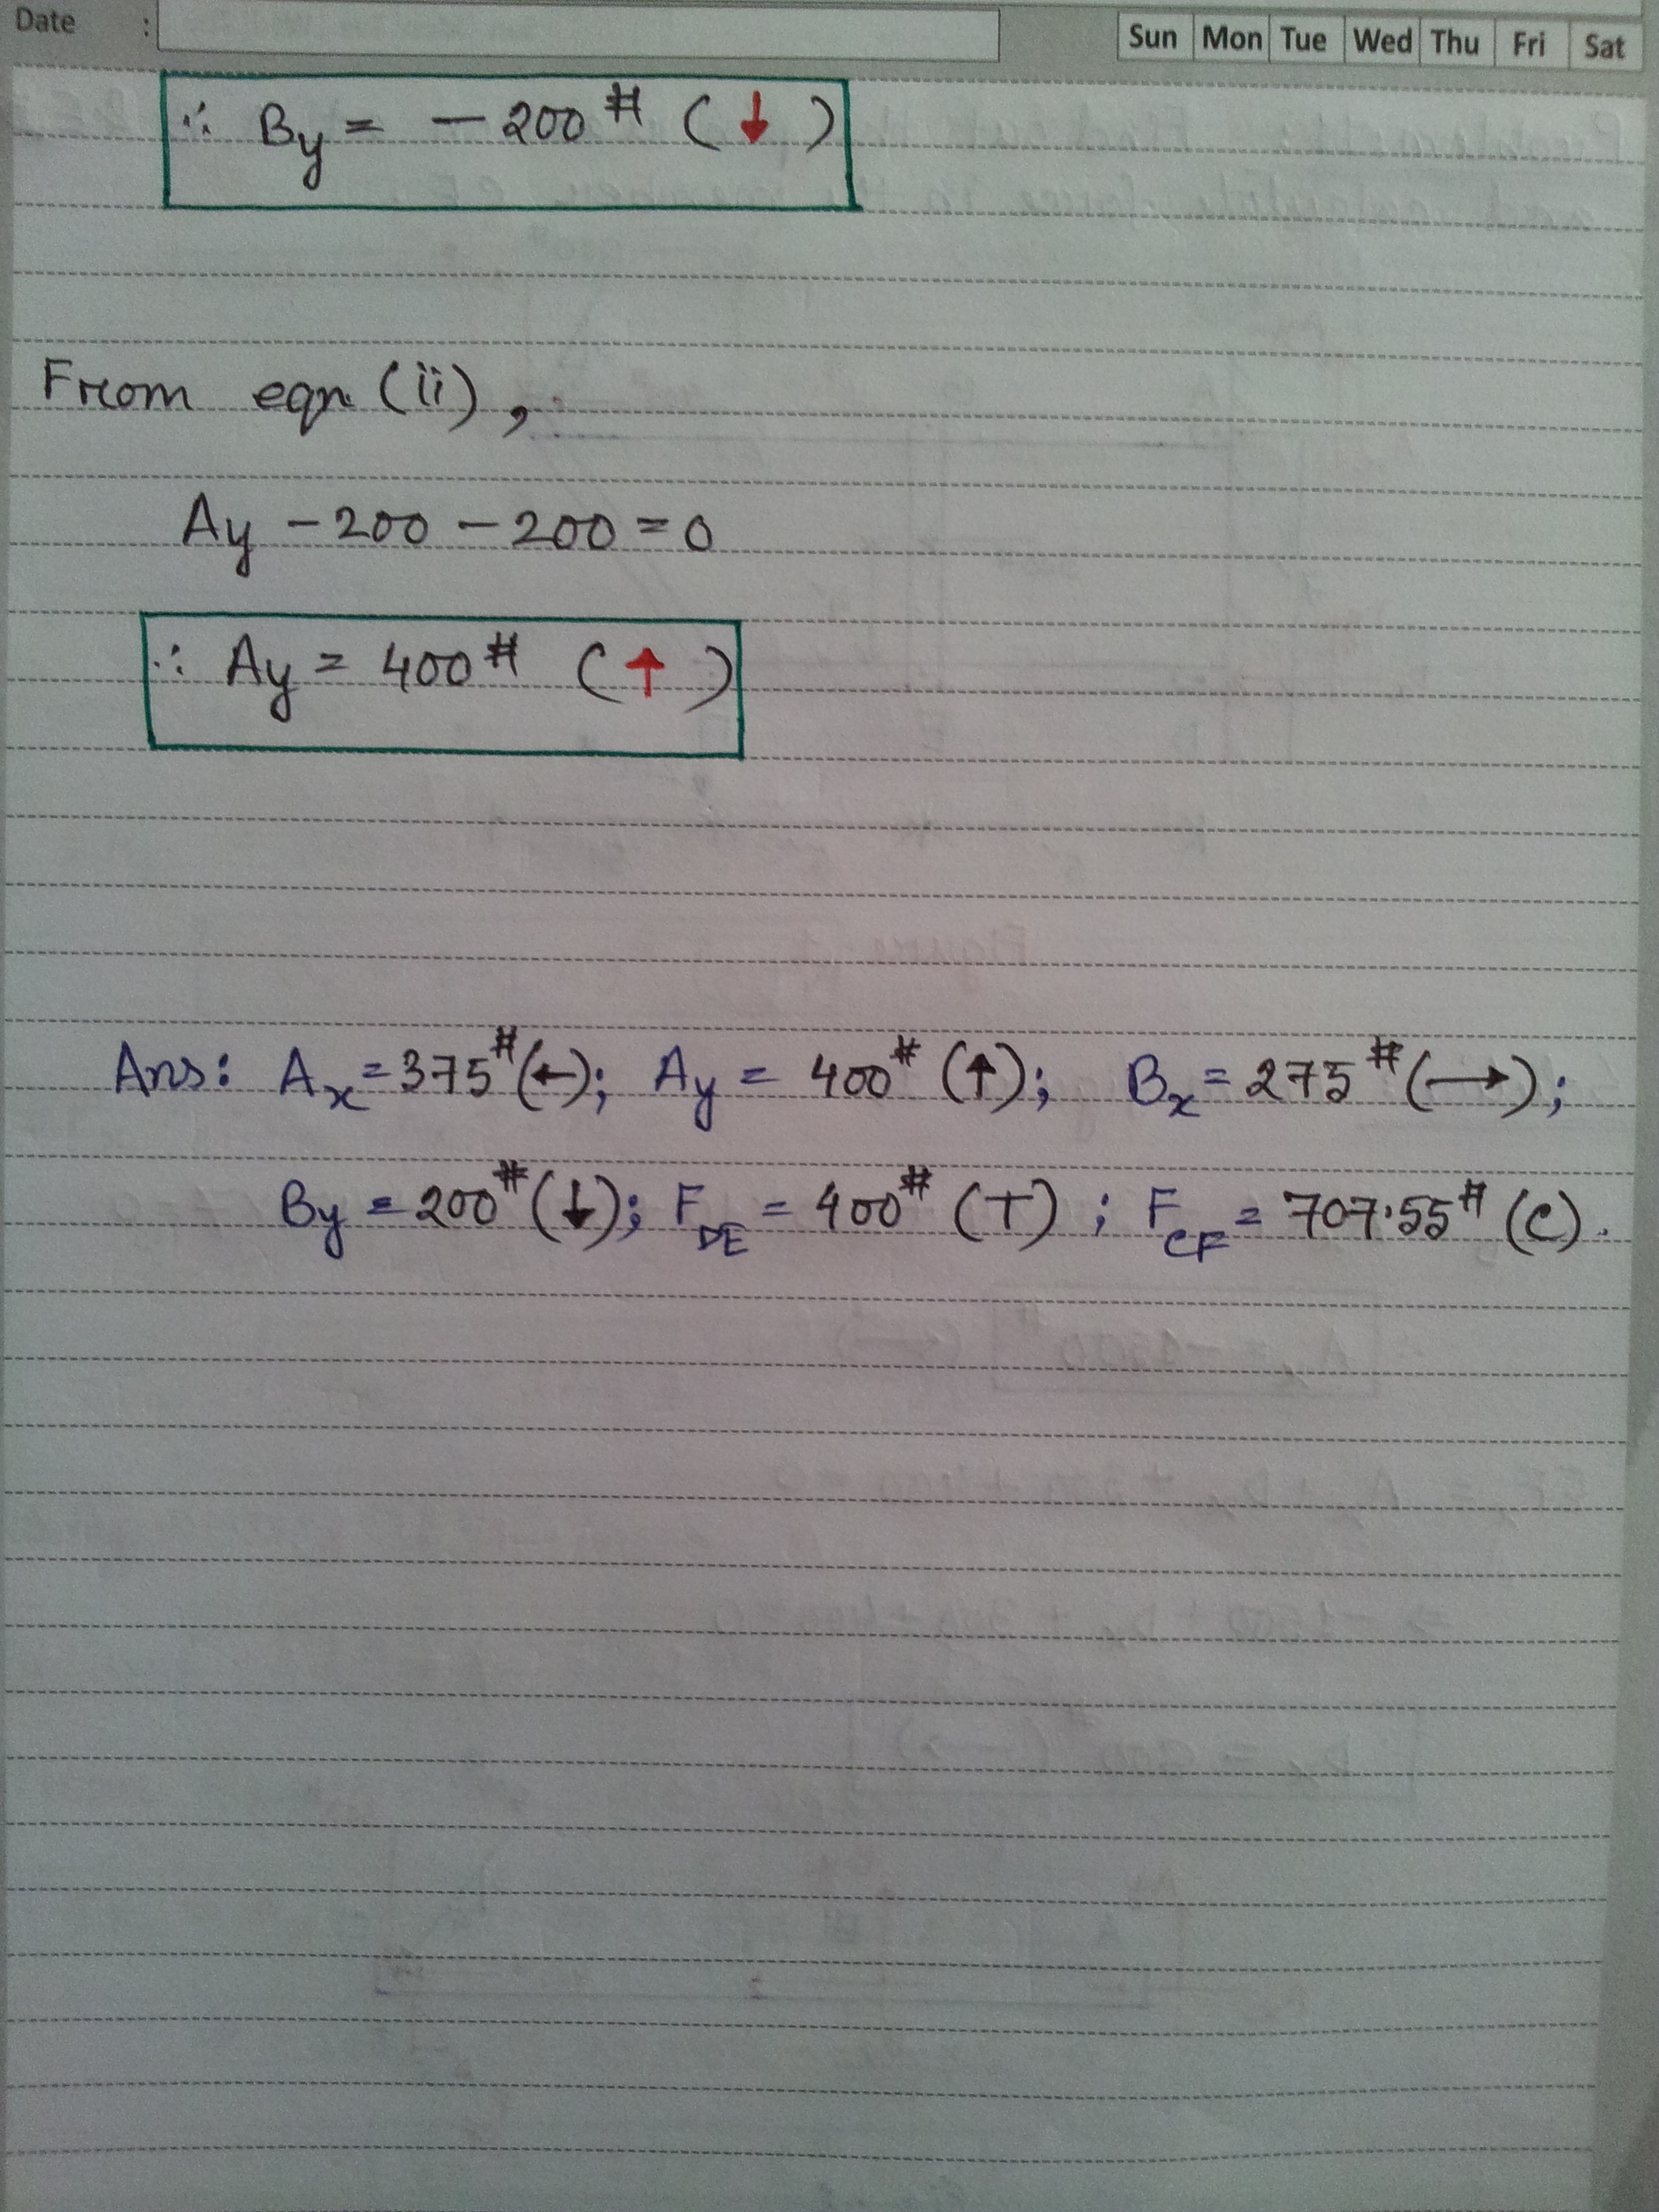 Date :
Sun Mon Tue Wed Thu Fri Sat
∴ By = - 200 # (↓)
From eqn. (ii),
Ay - 200 - 200 = 0
∴ Ay = 400 # (↑)
Ans: Ax = 375# (←); Ay = 400# (↑); Bx = 275# (→);
By = 200# (↓); F_DE = 400# (T); F_CF = 707.55# (C).